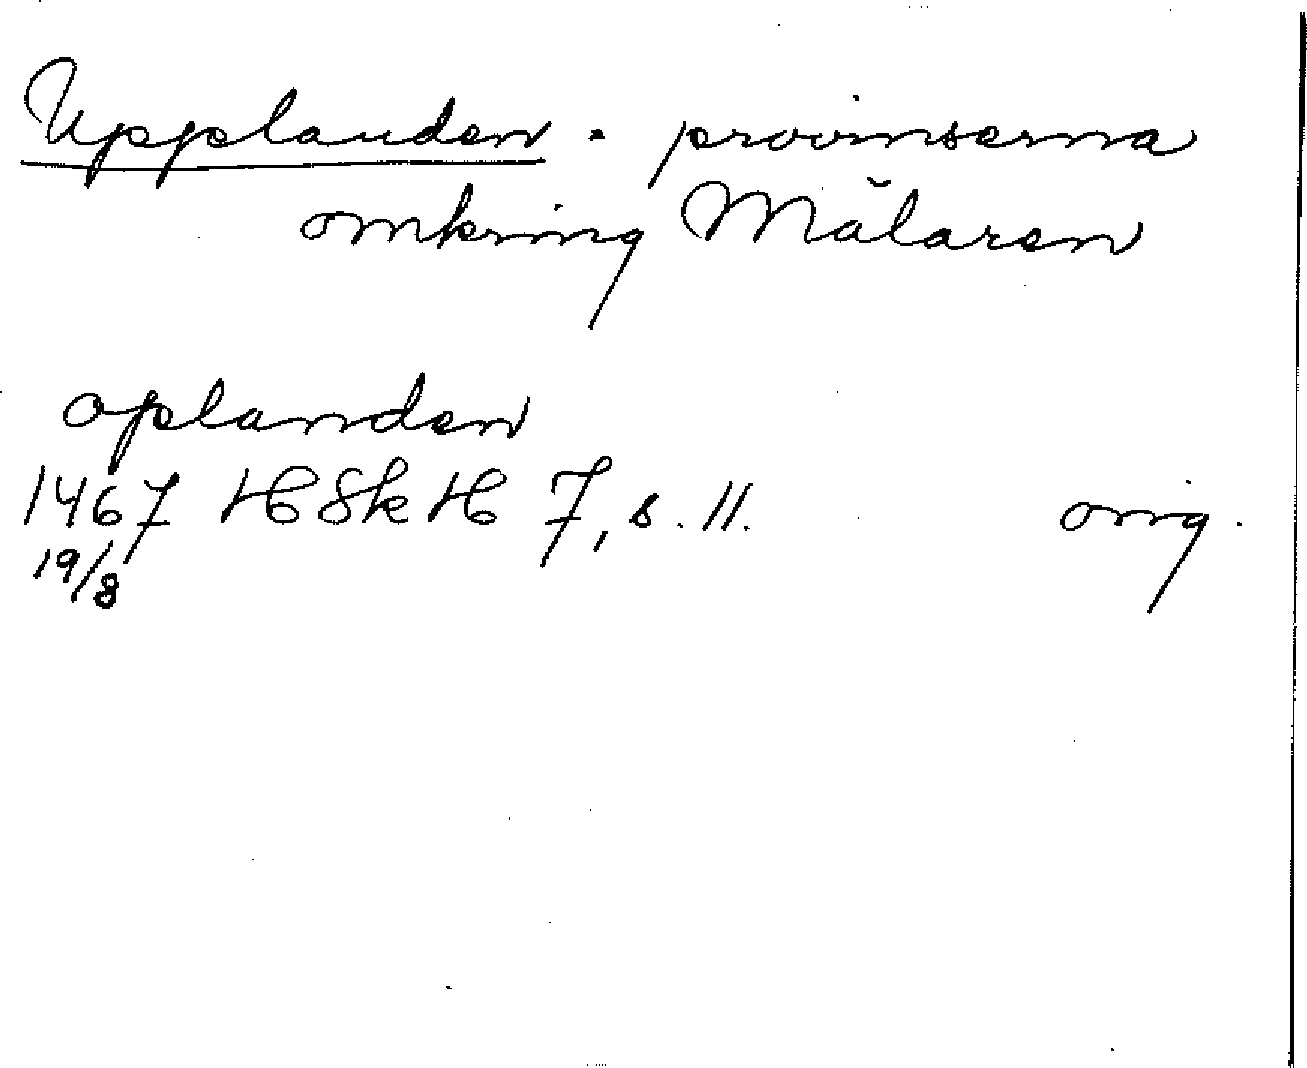 Upplanden · provinserna
omkring Mälaren
oplanden
1467 HSkH 7, s. 11. orig.
19/8